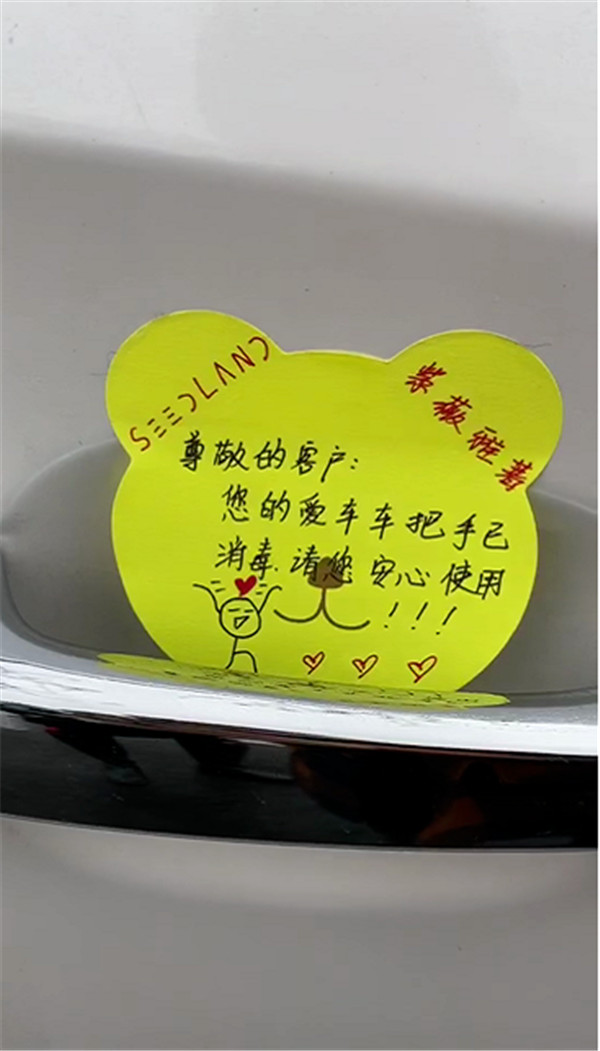 SEEDLAND
紫薇雅著
尊敬的客户:
您的爱车车把手已
消毒.请您安心使用
!!!